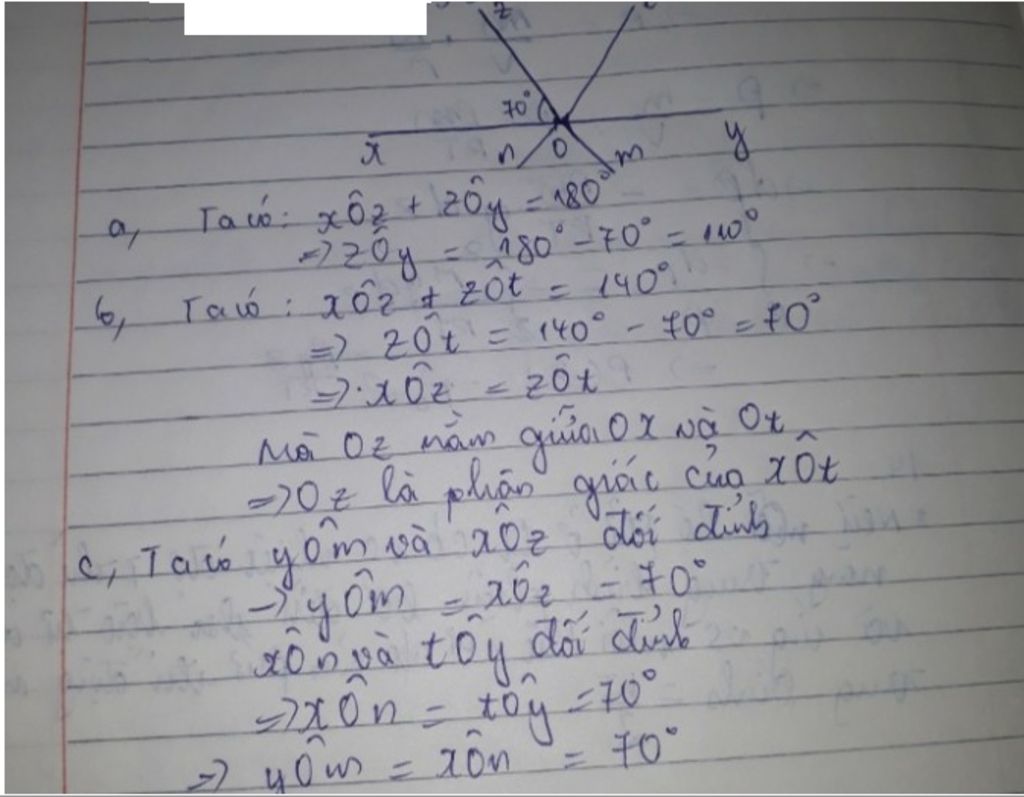 z
70°
x
n
O
m
y
a, Ta có: xÔz + zÔy = 180°
=> zÔy = 180° - 70° = 110°
b, Ta có: xÔz + zÔt = 140°
=> zÔt = 140° - 70° = 70°
=> xÔz = zÔt
Mà Oz nằm giữa Ox và Ot
=> Oz là phân giác của xÔt
c, Ta có yÔm và xÔz đối đỉnh
-> yÔm = xÔz = 70°
xÔn và tÔy đối đỉnh
=> xÔn = tÔy = 70°
=> yÔm = xÔn = 70°